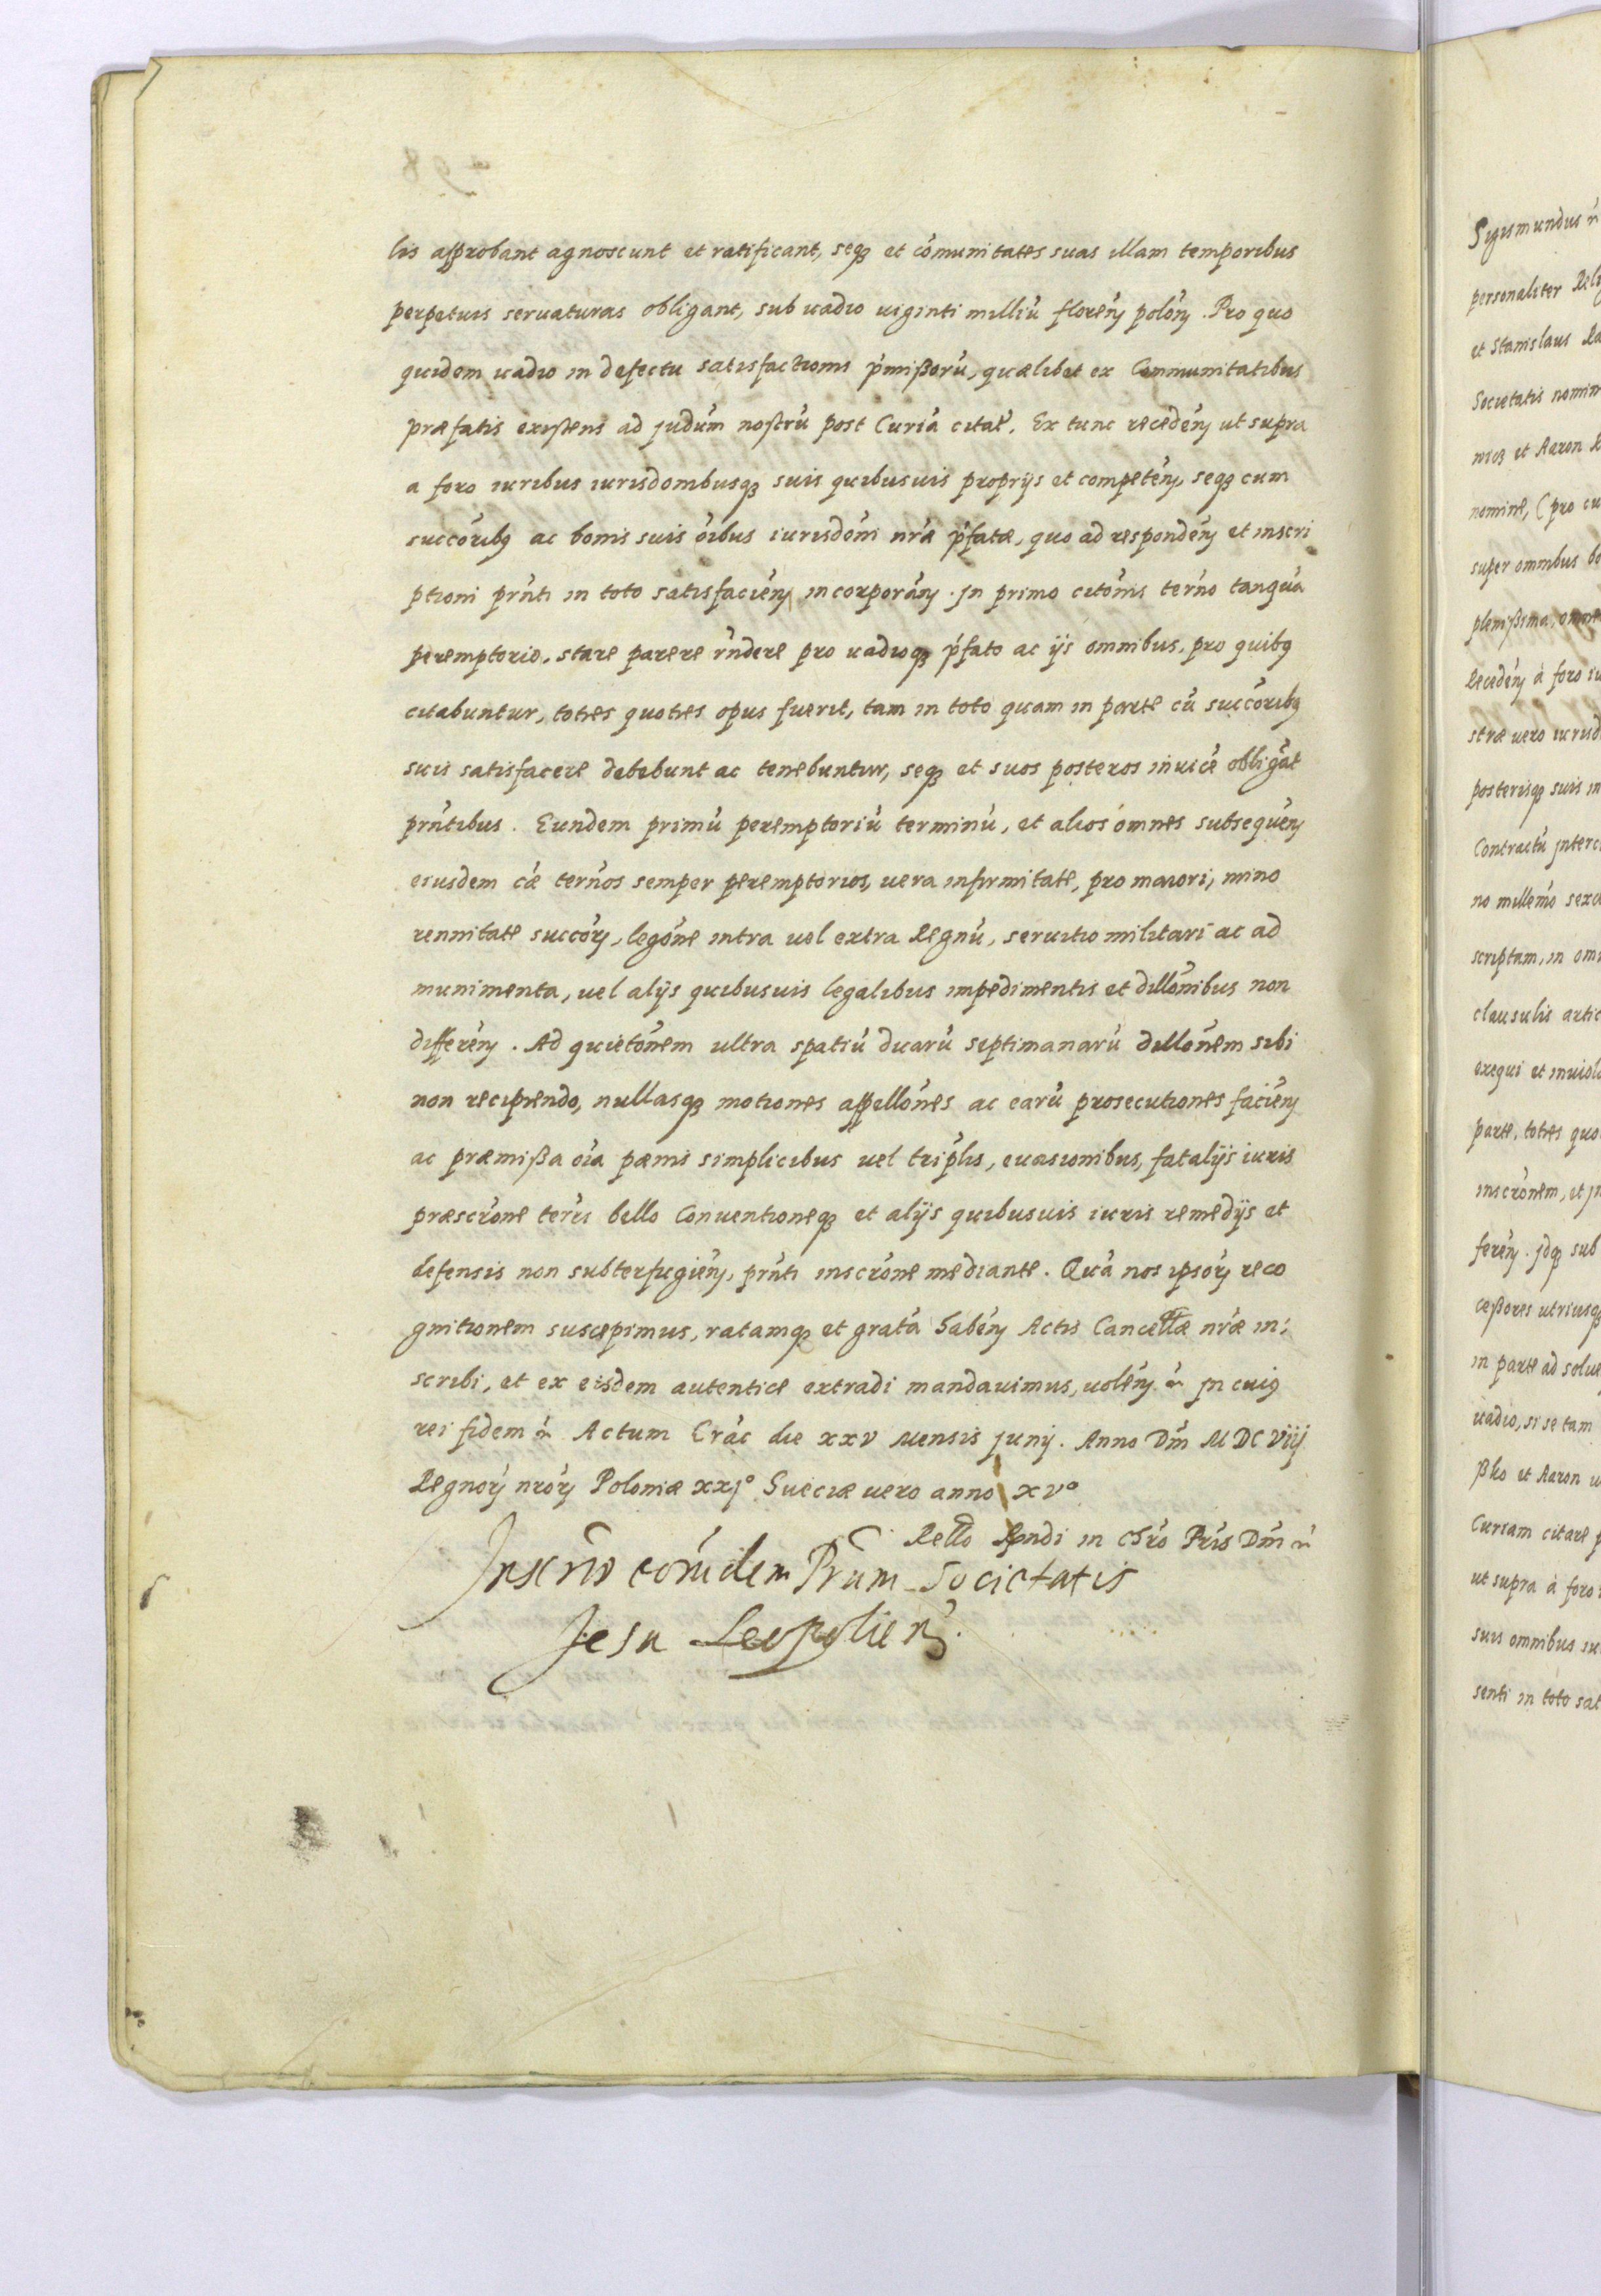 lis approbant agnoscunt et ratificant, seqꝫ et cōmunitates suas illam temporibus
perpetuis seruaturas obligant, sub uadio uiginti milliū floreñ poloñ. Pro quo
quidem uadio in defectu satisfactioni p̄mißorū, quælibet ex Communitatibus
præfatis existens ad judūm nostrū post Curiā citať. Ex tunc recedeñ ut supra
a foro iuribus iurisdonibusqꝫ suis quibusuis proprijs et competeñ, seqꝫ cum
succōribꝫ ac bonis suis ōibus iurisdōni nr̄æ p̄fatæ, quo ad respondeñ et inscri
ptioni prn̄ti in toto satisfacieñ incorporañ. Jn primo citōnis terno tanquā
peremptorio, stare parere rn̄dere pro uadioqꝫ p̄fato ac ijs omnibus, pro quibꝫ
citabuntur, toties quoties opus fuerit, tam in toto quam in parte cū succōribꝫ
suis satisfacere debebunt ac tenebuntur, seqꝫ et suos posteros inuicē obligāt
prn̄tibus. Eundem primū peremptoriū terminū, et alios omnes subsequeñ
eiusdem cǣ ternos semper peremptorios, uera infirmitate, pro maiori, mino
rennitate succoꝝ, legōne intra uel extra Regnū, seruitio militari ac ad
munimenta, uel alijs quibusuis legalibus impedimentis et dillōnibus non
differeñ. Ad quietōnem ultra spatiū duarū septimanarū dillōnem sibi
non recipiendo, nullasqꝫ motiones appellōnes ac earū prosecutiones facieñ
ac præmißa oīa pænis simplicibus uel triplis, euasionibus, fatalijs iuris
præscrōne terris bello Conuentioneqꝫ et alijs quibusuis iuris remedijs et
defensis non subterfugieñ, prn̄ti inscrōne mediante. Quā nos ipsoꝝ reco
gnitionem suscepimus, ratamqꝫ et gratā habeñ Actis Cancellæ nr̄æ in:
scribi, et ex eisdem autentice extradi mandauimus, uoleñ &c Jn cuiꝫ
rei fidem &c Actum Crac̄ die xxv Mensis Junij. Anno Dn̄i M DC viij
Regnoꝝ nr̄oꝝ Poloniæ xxj° Sueciæ uero anno xv°
Rello Rn̄di in Chr̄o Pr̄is Dn̄i &c
Inscrio eorūdem Pr̄um Societatis
Jesu Leopolieñ.
Sigismundus &c
personaliter
et Stanislaus
Societatis
et Aaron
nomine, (pro
super omnibus
plenißima,
Recedeñ à foro
stræ uero
posterisqꝫ suis
Contractū
no millemo
scriptam, in
clausulis
exequi et
parte, toties
inscrōnem, et
fereñ. Jdqꝫ sub
ceßores
in parte ad
uadio, si se tam
et Aaron
Curiam citare
ut supra à foro
suis omnibus
senti in toto